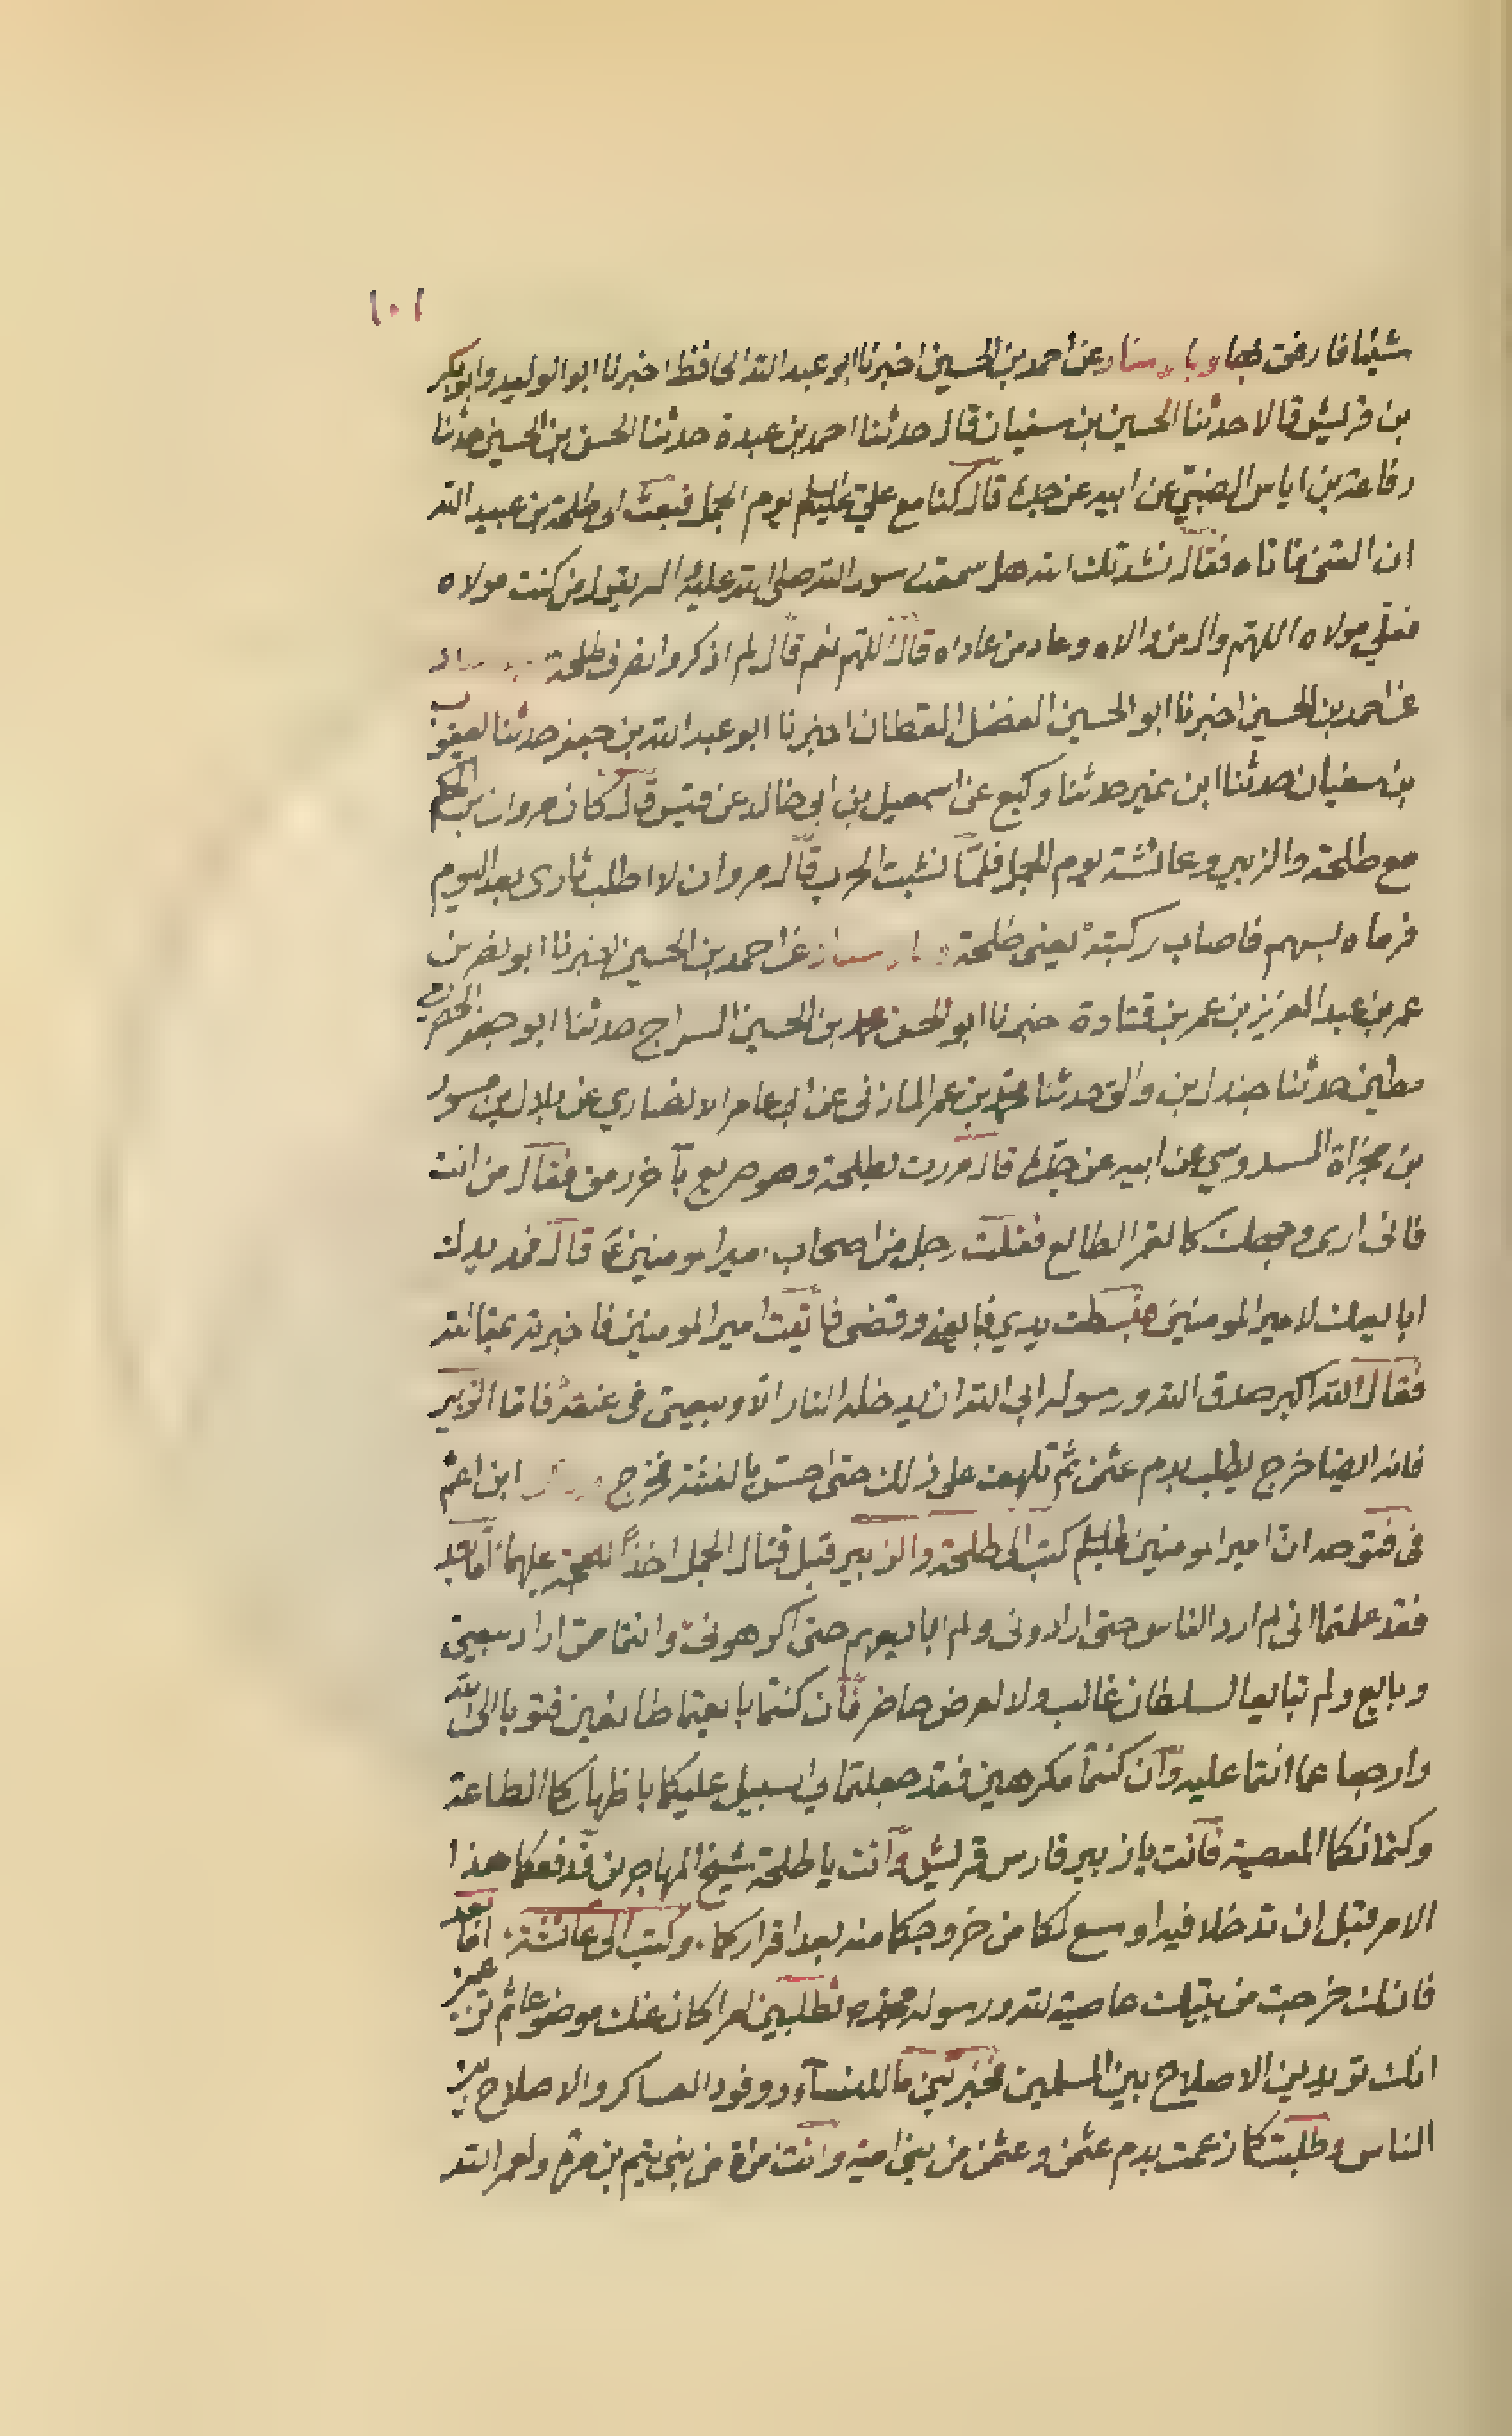 ١٠١
شيئا فارغت لها وبا سناد عن احمد بن الحسين اخبرنا ابو عبد الله الحافظ اخبرنا ابو الوليد وابو بكر
بن قريش قالا حدثنا الحسين بن سفيان قال حدثنا احمد بن عبدة حدثنا الحسن بن الحسين حدثنا
رفاعة بن اياس الضبي عن ابيه عن جده قال كنا مع علي عليه السلام يوم الجمل فبعث الى طلحة بن عبيد الله
ان القنى فاتاه فقال نشدتك الله هل سمعت رسول الله صلى الله عليه اله يقول من كنت مولاه
فعلي مولاه اللهم وال من والاه وعاد من عاداه قال اللهم نعم قال لم اذكر وانصرف طلحة
عن احمد بن الحسين اخبرنا ابو الحسين الفضل القطان اخبرنا ابو عبد الله بن جعفر حدثنا يعقوب
بن سفيان حدثنا ابن نمير حدثنا وكيع عن اسمعيل بن ابي خالد عن قيس قال كان مروان بن الحكم
مع طلحة والزبير وعائشة يوم الجمل فلما نشبت الحرب قال مروان لا اطلب ثارى بعد اليوم
فرماه بسهم فاصاب ركبته يعنى طلحة با سناد عن احمد بن الحسين اخبرنا ابو نصر بن
عمر بن عبد العزيز بن عمر بن قتادة خبرنا ابو الحسن محمد بن الحسين السراج حدثنا ابو جعفر الحضرمي
مطين حدثنا جندل بن والق حدثنا محمد بن عمر المازنى عن ابي عامر الانصاري عن بلال بن مسور
بن مجزاة السدوسي عن ابيه عن جده قال مررت بطلحة وهو صريع بآخر رمق فقال من انت
فانى ارى وجهك كالقمر الطالع فقلت رجل من اصحاب امير المومنين ع قال فمد يدك
ابايعك لامير المومنين فبسطت يدي فبايعنى وقضى فاتيت امير المومنين فاخبرته بمقالته
فقال الله اكبر صدق الله ورسوله ابى الله ان يدخله النار الا وبيعتى فى عنقه فاما الزبير
فانه ايضا خرج يطلب بدم عثمن ثم تلهف على ذلك حتى احسن بالفتنة فخرج ابن اعثم
فى فتوحه ان امير المومنين عليه السلام كتب الى طلحة والزبير قبل قتال الجمل اخذا للحجة عليهما اما بعد
فقد علمتما انى لم ارد الناس حتى ارادونى ولم ابايعهم حتى اكرهونى وانتما ممن اراد بيعتى
وبايع ولم تبايعا لسلطان غالب ولا لعرض حاضر فان كنتما بايعتما طائعين فتوبا الى الله
وارجعا عما انتما عليه وان كنتما مكرهين فقد جعلتما لي السبيل عليكما باظهاركما الطاعة
وكتمانكما المعصية فانت يا زبير فارس قريش وانت يا طلحة شيخ المهاجرين فدفعكما هذا
الامر قبل ان تدخلا فيه اوسع لكما من خروجكما منه بعد اقراركما . وكتب الى عائشة . اما بعد
فانك خرجت من بيتك عاصية لله ورسوله محمد تطلبين امرا كان عنك موضوعا ثم تزعمين
انك تريدين الاصلاح بين المسلمين فخبريني ما للنساء وقود العساكر والاصلاح بين
الناس وطلبت كما زعمت بدم عثمن وعثمن من بنى امية وانت امراة من بنى تيم بن مرة ولعمر الله